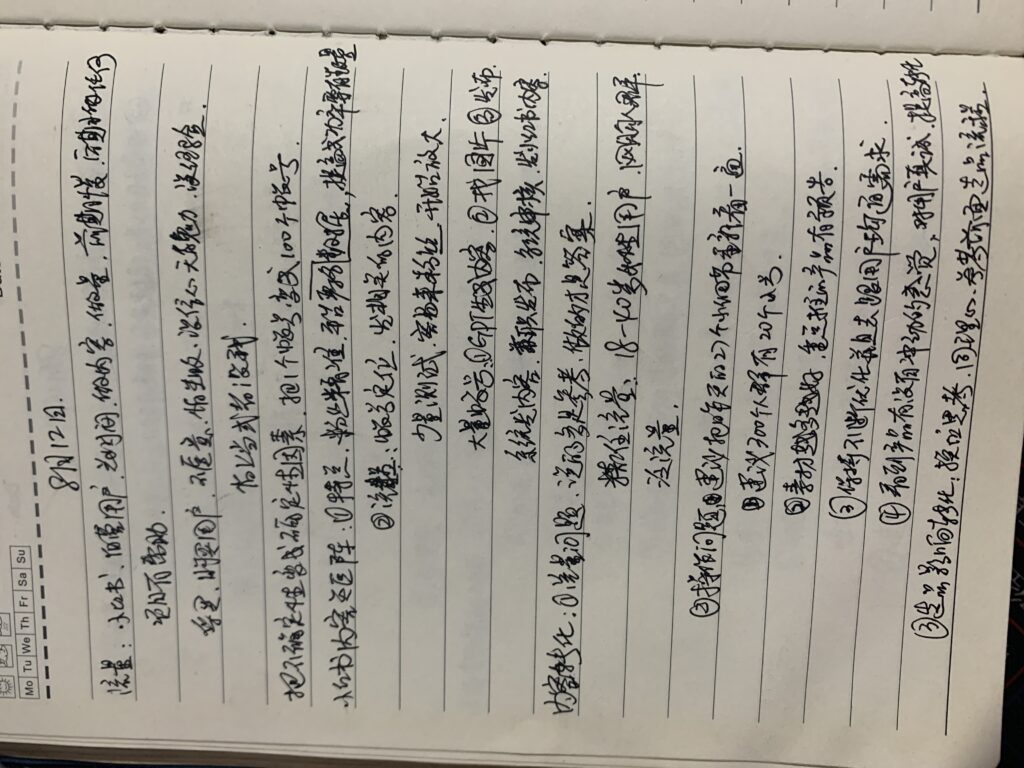 Mo Tu We Th Fr Sa Su
8月12日.
流量: 小红书、 用户, 花时间, 做内容, 做量, 前期慢, 后期 任何
项目有帮助.
用户, 不 意, 怕失败、没信心 无 魅力、没经验,
或者没钱.
把不确定性变成确定性因素, 把1个账号变成100个账号.
小红书内容矩阵: ①特点, 粉丝精准, 数据, 提高成功率要有数量
② 流量: 账号定位, 发相关的内容.
少量测试, 容易来粉丝, 开始放大.
大量 号: ①GPT生成内容, ②找图片 ③发布.
系统发内容, 兼职发布, 系统审核, 发小红书内容.
内容转化: ①流量问题, 说的多是参考, 做的才是答案.
流量: 18-40岁女性用户, 网购人群.
泛流量.
②操作问题, 建议把昨天的27个小细节重新看一遍.
建议300个人群有20个小号.
②素材越多越好, 重点推的产品有预告.
③保持不断优化, 并且去跟用户沟通需求.
④看到产品有没有冲动的感觉, 对用户真诚, 提高转化
③选品影响转化: 换位思考, 同理心、参考前面选品流程.